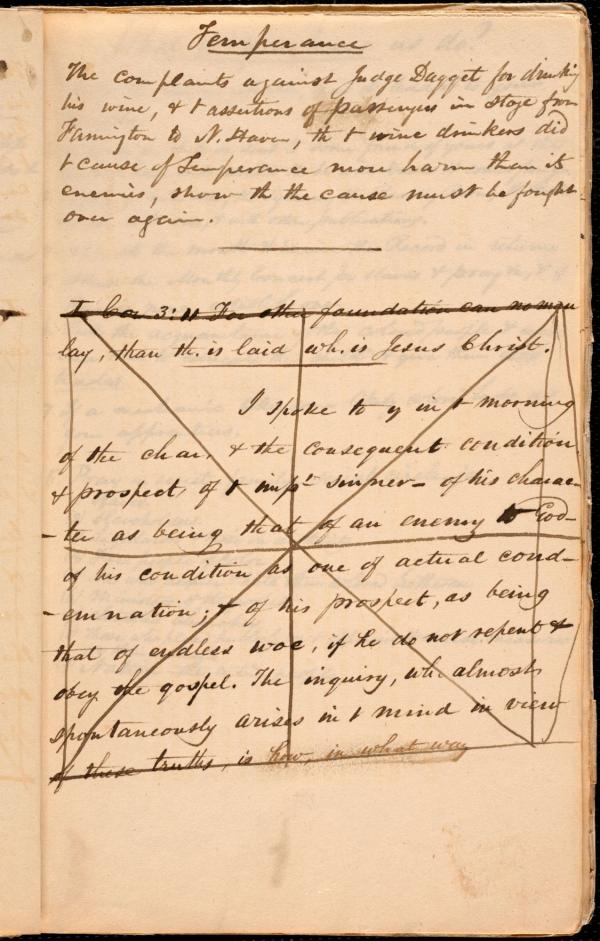 Temperance
The complaints against Judge Dagget for drinking
his wine, & t assertions of passengers in stage from
Farmington to N. Haven, th t wine drinkers did
t cause of Temperance more harm than its
enemies, show th the cause must be fought
over again.
I Cor 3:11 For other foundation can no man
lay, than th. is laid wh. is Jesus Christ.
I spoke to y in t morning
of the char. & the consequent condition
& prospect, of t imp^t sinner – of his charac-
-ter as being that of an enemy to God–
of his condition as one of actual cond-
-emnation; & of his prospect, as being
that of endless woe, if he do not repent &
obey the gospel. The inquiry, wh. almost
spontaneously arises in t mind in view
of these truths, is how, in what way